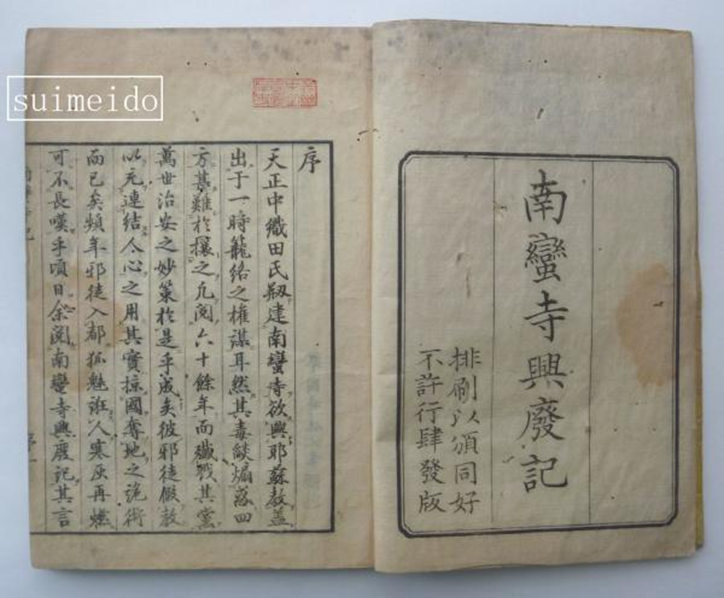 suimeido
南蠻寺興廢記
排刷以頒同好
不許行肆發版
序
天正中織田氏剏建南蠻寺欲興耶蘇教蓋
出于一時籠絡之権謀耳然其毒燄煽惑四
方甚難於攘之凡閱六十餘年而殲戮其黨
萬世治安之妙策於是乎成矣彼邪徒假教
以充連結人心之用其實掠國奪地之詭術
而已矣頻年邪徒入都狐魅誑人寒灰再燃
可不長嘆乎頃日余閱南蠻寺興廢記其言